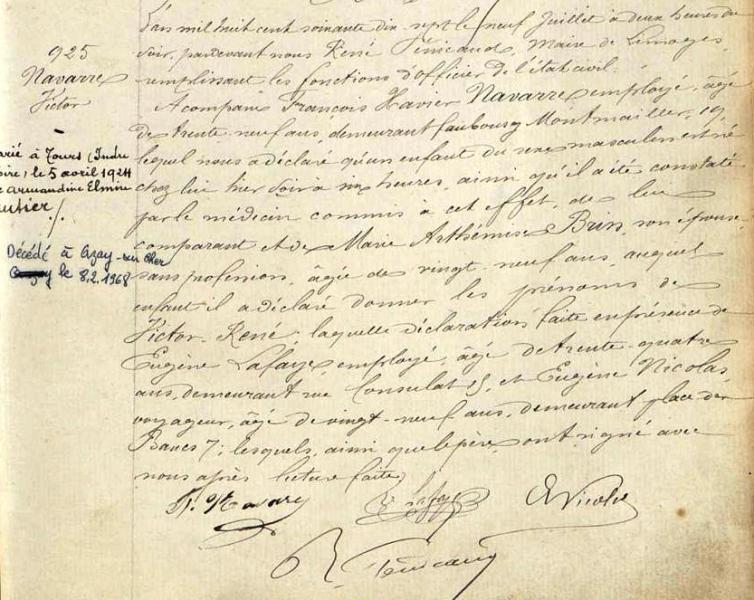 925
Navarre
Victor
arié à Tours (Indre
oire) le 5 avril 1924
c Armandine Elmire
utier ./.
Décédé à Azay-sur Cher
le 8.2.1968
L'an mil huit cent soixante dix-sept le neuf Juillet à deux heures du
soir, pardevant nous René Pénicaud, Maire de Limoges,
remplissant les fonctions d'officier de l'état civil.
A comparu François Xavier Navarre, employé, âgé
de trente-neuf ans, demeurant faubourg Montmailler, 19,
lequel nous a déclaré qu'un enfant du sexe masculin est né
chez lui hier soir à heures, ainsi qu'il a été constaté
par le médecin commis à cet effet, de lui
comparant et de Marie Arthémise Brin, son épouse,
sans profession, âgée de vingt-neuf ans, auquel
enfant il a déclaré donner les prénoms de
Victor-René; laquelle déclaration faite en présence de
Eugène Lafaye, employé, âgé de trente-quatre
ans, demeurant rue Consulat, et Eugène Nicolas,
voyageur, âgé de vingt-neuf ans, demeurant place des
Bancs 7; lesquels, ainsi que le père, ont signé avec
nous après lecture faite,
Navarre
Lafaye
E Nicolas
R. Pénicaud